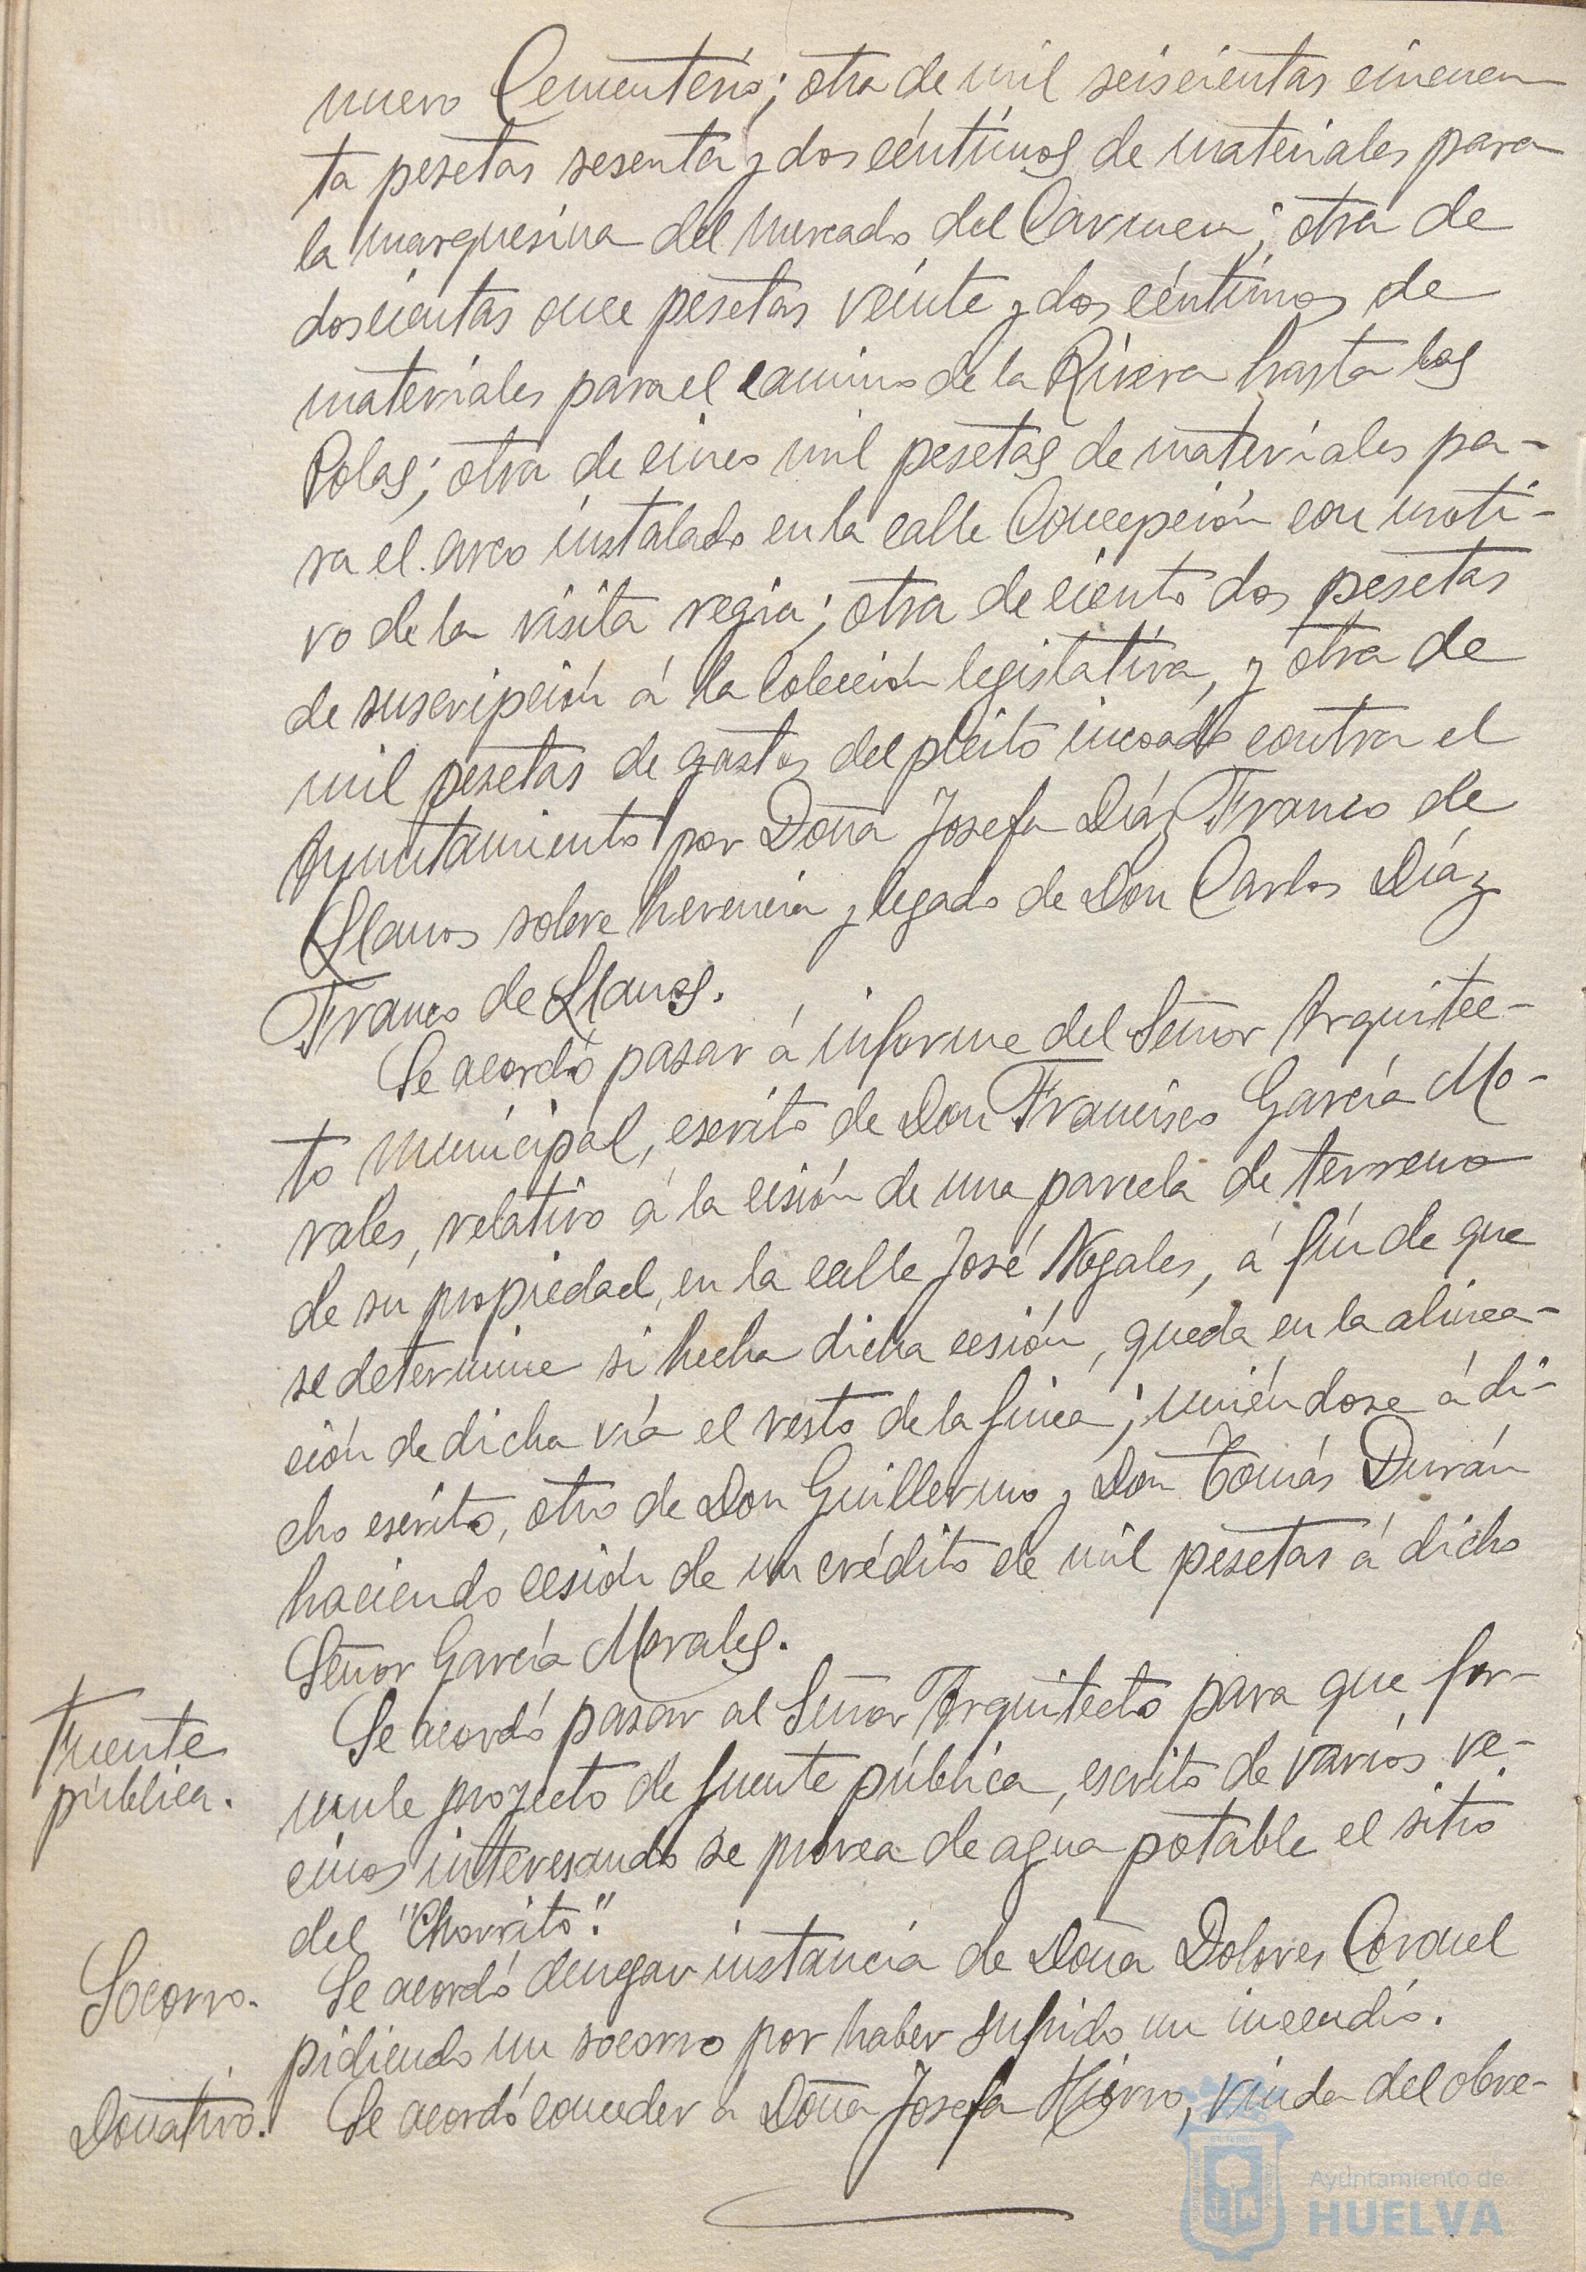 nuevo Cementerio; otra de mil seiscientas cincuen
ta pesetas sesenta y dos céntimos de materiales para
la marquesina del mercado del Carmen; otra de
doscientas once pesetas veinte y dos céntimos de
materiales para el camino de la Rivera hasta las
Polas; otra de cinco mil pesetas de materiales pa-
ra el arco instalado en la calle Concepción con moti-
vo de la visita regia; otra de ciento dos pesetas
de suscripción á la colección legislativa, y otra de
mil pesetas de gastos del pleito incoado contra el
Ayuntamiento por Doña Josefa Díaz Franco de
Llanos sobre herencia y legado de Don Carlos Díaz
Franco de Llanos.
Se acordó pasar á informe del Señor Arquitec-
to municipal, escrito de Don Francisco García Mo-
rales, relativo á la cisión de una parcela de terreno
de su propiedad, en la calle José Nogales, á fin de que
se determine si hecha dicha cesión, queda en la alinea-
ción de dicha vía el resto de la finca; uniéndose á di-
cho escrito, otro de Don Guillermo y Don Tomás Durán
haciendo cesión de un crédito de mil pesetas á dicho
Señor García Morales.
Fuente
pública.
Se acordó pasar al Señor Arquitecto para que for-
mule proyecto de fuente pública, escrito de varios ve-
cinos interesando se provea de agua potable el sitio
del "Chorrito".
Socorro.
Se acordó denegar instancia de Doña Dolores Coronel
pidiendo un socorro por haber sufrido un incendio.
Donativo.
Se acordó conceder a Doña Josefa Hierro, viuda del obre-
Ayuntamiento de
HUELVA